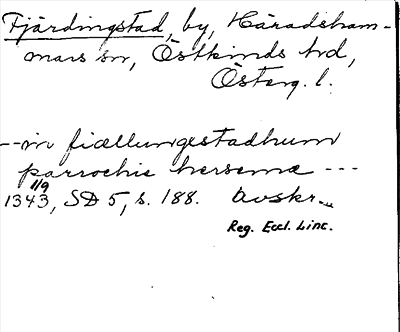 Fjärdingstad, by, Häradsham-
mars sn, Östkinds hd,
Österg. l.
--in fiællungestadhum
parrochie hersema ---
11/9
1343, SD 5, s. 188. Avskr.
Reg. Eccl. Linc.